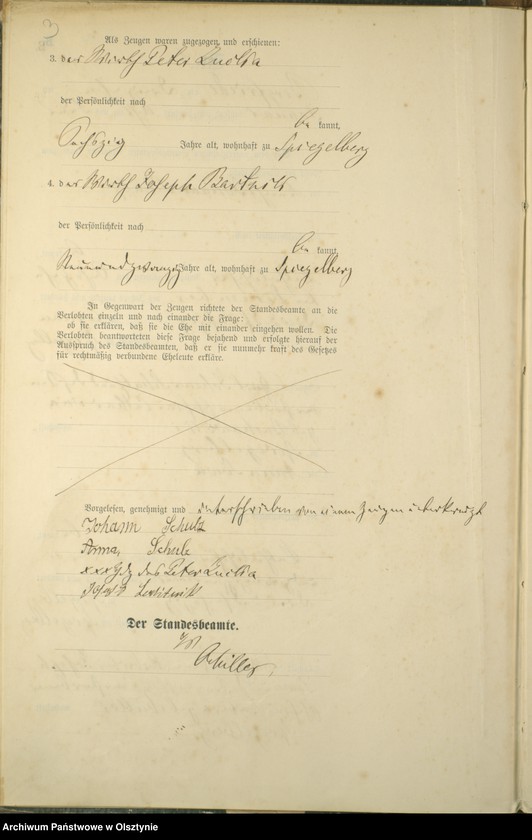 3
Als Zeugen waren zugezogen und erschienen:
3. der Wirth Peter
der Persönlichkeit nach
be kannt,
Sechszig Jahre alt, wohnhaft zu Spiegelberg
4. der Wirth Joseph Bartnik
der Persönlichkeit nach
be kannt,
Neunundzwanzig Jahre alt, wohnhaft zu Spiegelberg
In Gegenwart der Zeugen richtete der Standesbeamte an die
Verlobten einzeln und nach einander die Frage:
ob sie erklären, daß sie die Ehe mit einander eingehen wollen. Die
Verlobten beantworteten diese Frage bejahend und erfolgte hierauf der
Ausspruch des Standesbeamten, daß er sie nunmehr kraft des Gesetzes
für rechtmäßig verbundene Eheleute erkläre.
Vorgelesen, genehmigt und unterschrieben von einem Zeugen unterkreuzt
Johann Schulz
Anna
xxx Hdz des Peter
Der Standesbeamte.
Archiwum Państwowe w Olsztynie